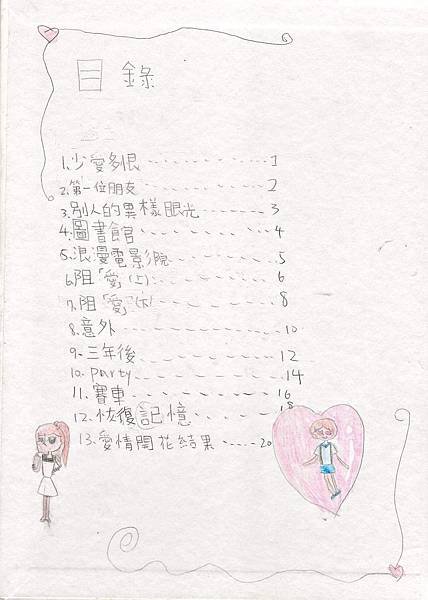 目錄
1.少愛多恨 1
2.第一位朋友 2
3.別人的異樣眼光 3
4.圖書館 4
5.浪漫電影院 5
6.阻「愛」(上) 6
7.阻「愛」(下) 8
8.意外 10
9.三年後 12
10.party 14
11.賽車 16
12.恢復記憶 18
13.愛情開花結果 20